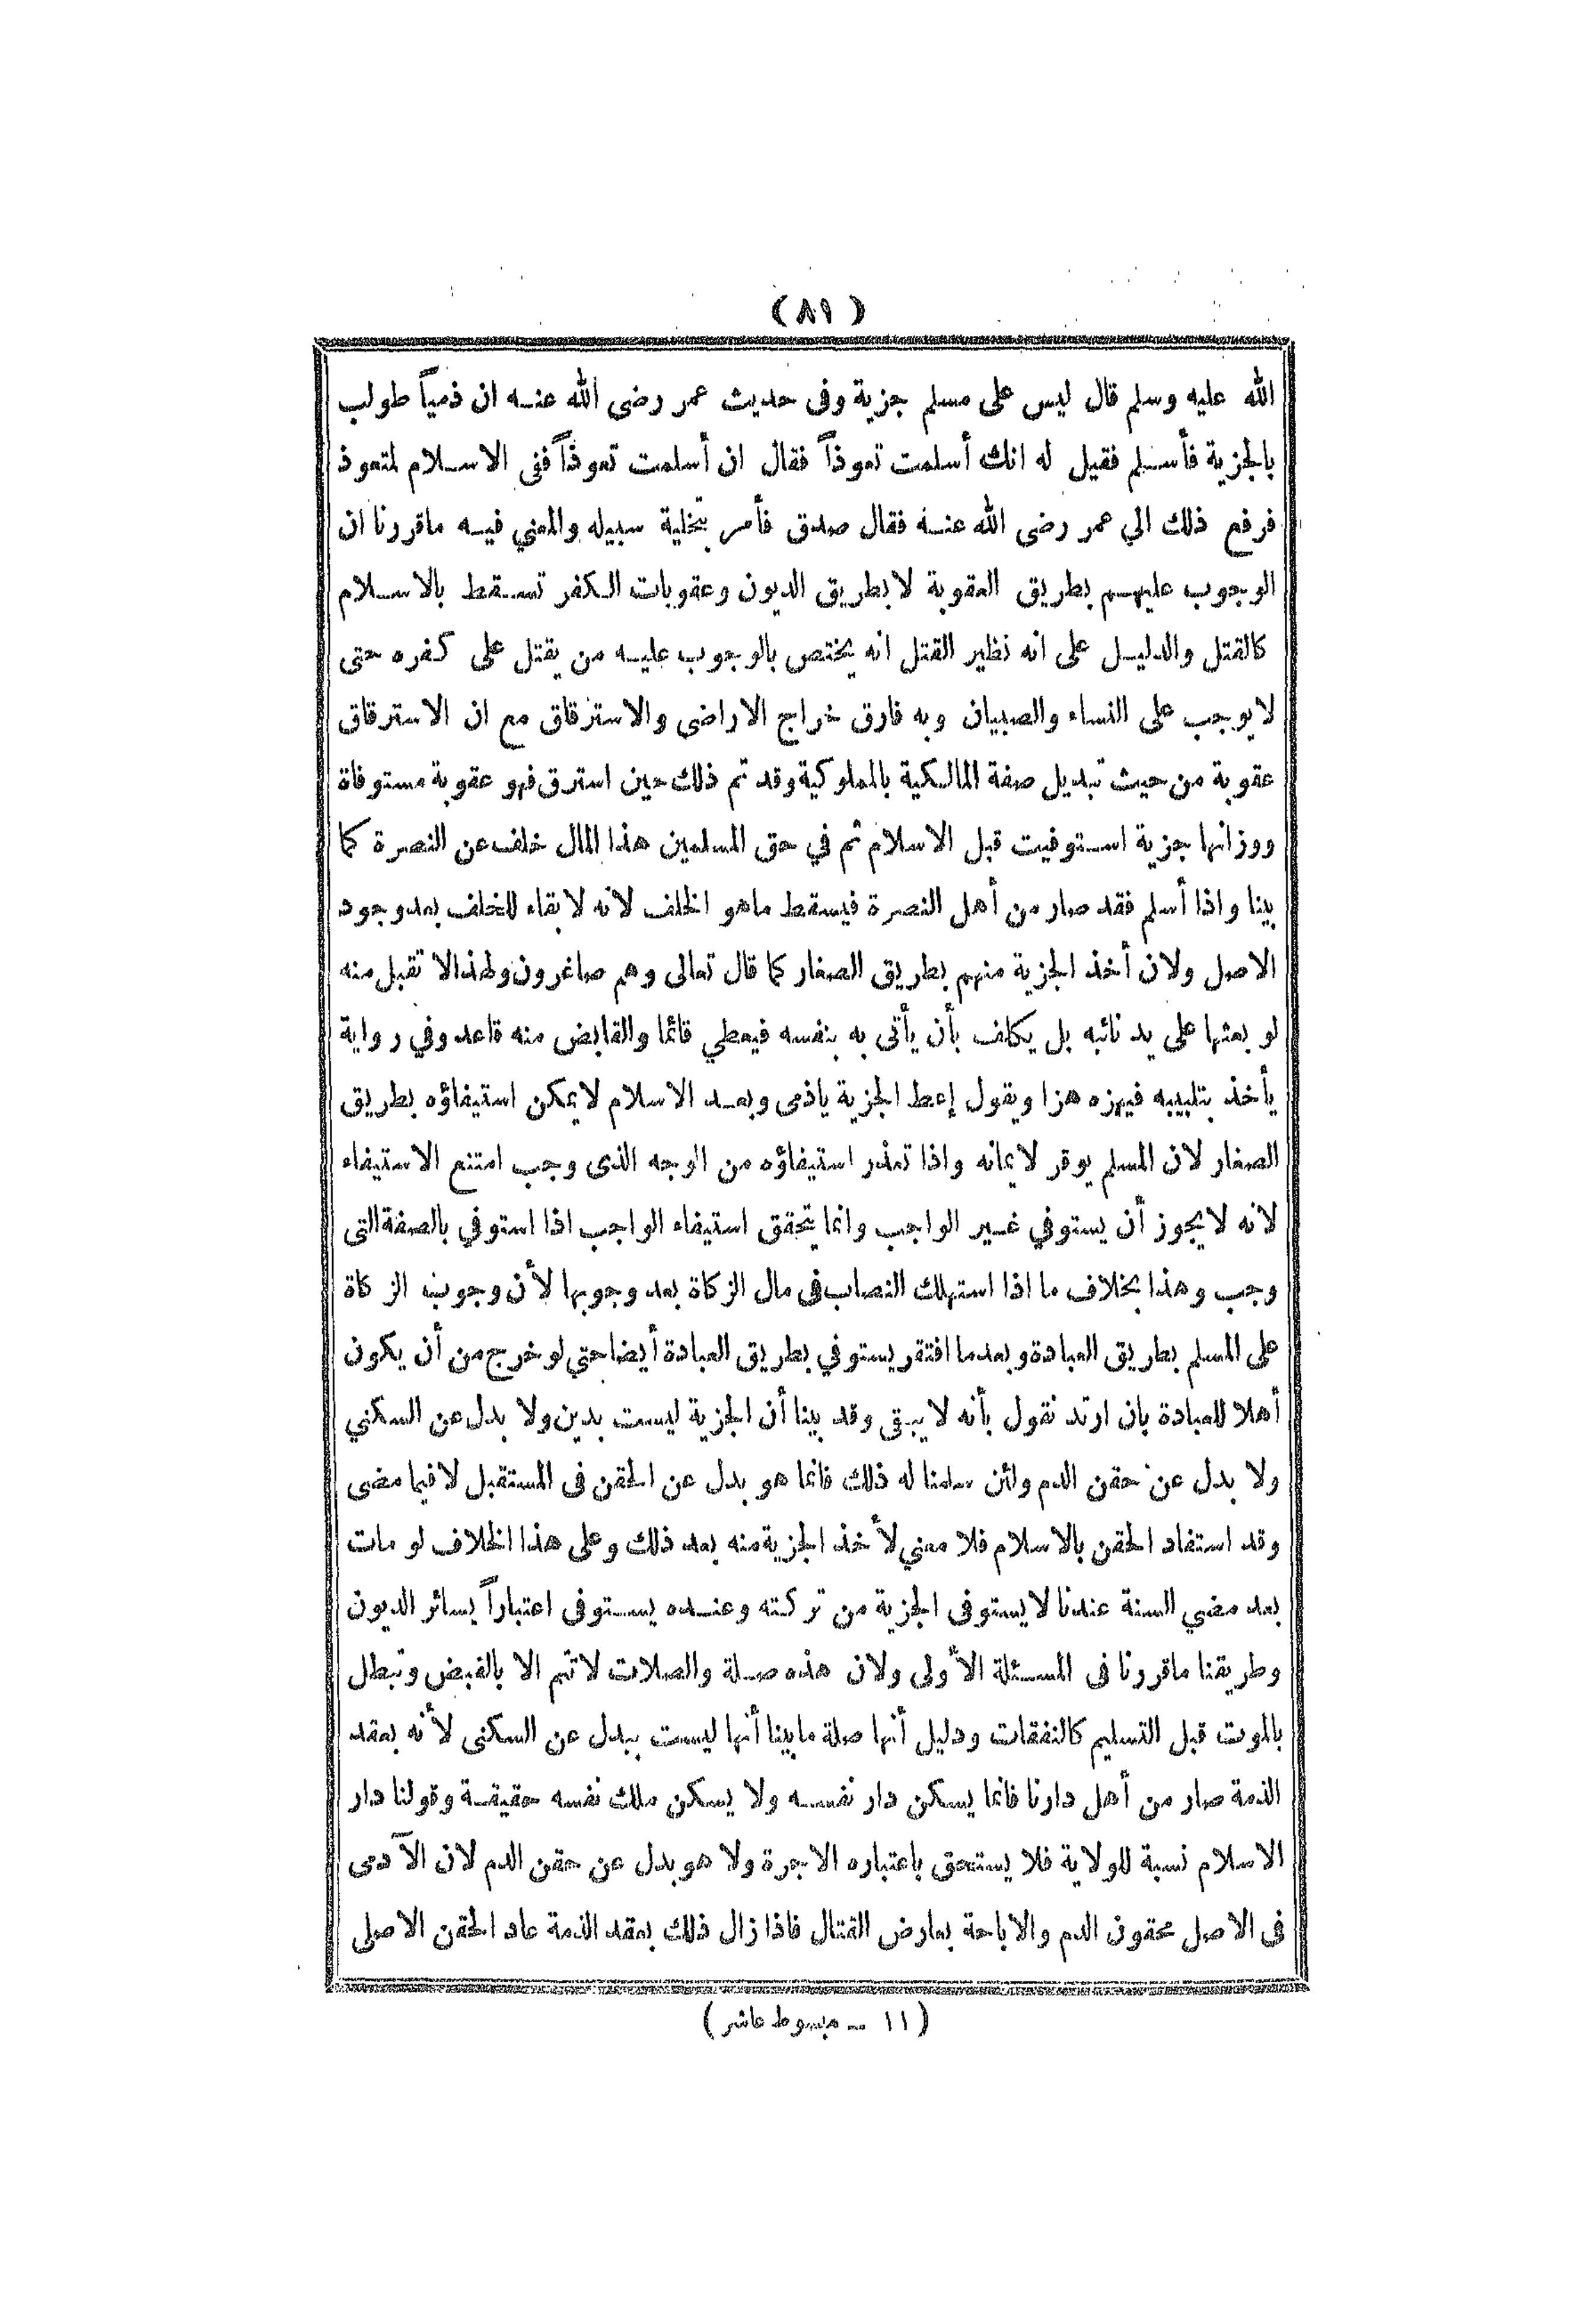 (٨١)
الله عليه وسلم قال ليس على مسلم جزية وفى حديث عمر رضى الله عنه ان ذمياً طولب
بالجزية فأسلم فقيل له انك أسلمت تعوذاً فقال ان أسلمت تعوذاً ففى الاسلام لمتعوذ
فرفع ذلك الي عمر رضى الله عنه فقال صدق فأمر بتخلية سبيله والمعني فيه ماقررنا ان
الوجوب عليهم بطريق العقوبة لا بطريق الديون وعقوبات الكفر تسقط بالاسلام
كالقتل والدليل على انه نظير القتل انه يختص بالوجوب عليه من يقتل على كفره حتى
لا يوجب على النساء والصبيان وبه فارق خراج الاراضى والاسترقاق مع ان الاسترقاق
عقوبة من حيث تبديل صفة المالكية بالمملوكية وقد تم ذلك حين استرق فهو عقوبة مستوفاة
ووزانها جزية استوفيت قبل الاسلام ثم في حق المسلمين هذا المال خلف عن النصرة كما
بينا واذا أسلم فقد صار من أهل النصرة فيسقط ماهو الخلف لانه لا بقاء للخلف بعد وجود
الاصل ولان أخذ الجزية منهم بطريق الصغار كما قال تعالى وهم صاغرون ولهذا لا تقبل منه
لو بعثها على يد نائبه بل يكلف بأن يأتى به بنفسه فيعطي قائما والقابض منه قاعد وفي رواية
يأخذ بتلبيبه فيهزه هزا ويقول إعط الجزية ياذمى وبعد الاسلام لا يمكن استيفاؤه بطريق
الصغار لان المسلم يوقر لايمانه واذا تعذر استيفاؤه من الوجه الذى وجب امتنع الاستيفاء
لانه لا يجوز أن يستوفي غير الواجب وانما يتحقق استيفاء الواجب اذا استوفي بالصفة التى
وجب وهذا بخلاف ما اذا استهلك النصاب فى مال الزكاة بعد وجوبها لأن وجوب الزكاة
على المسلم بطريق العبادة وبعد ما افتقر يستوفي بطريق العبادة أيضا حتي لو خرج من أن يكون
أهلا للعبادة بان ارتد نقول بأنه لا يبقى وقد بينا أن الجزية ليست بدين ولا بدل عن السكني
ولا بدل عن حقن الدم ولئن سلمنا له ذلك فانما هو بدل عن الحقن فى المستقبل لا فيما مضى
وقد استفاد الحقن بالاسلام فلا معني لأخذ الجزية منه بعد ذلك وعلى هذا الخلاف لو مات
بعد مضي السنة عندنا لا يستوفى الجزية من تركته وعنده يستوفى اعتباراً بسائر الديون
وطريقنا ماقررنا فى المسئلة الأولى ولان هذه صلة والصلات لا تتم الا بالقبض وتبطل
بالموت قبل التسليم كالنفقات ودليل أنها صلة مابينا أنها ليست ببدل عن السكنى لأنه بعقد
الذمة صار من أهل دارنا فانما يسكن دار نفسه ولا يسكن ملك نفسه حقيقة وقولنا دار
الاسلام نسبة للولاية فلا يستحق باعتباره الاجرة ولا هو بدل عن حقن الدم لان الآدمى
فى الاصل محقون الدم والاباحة بعارض القتال فاذا زال ذلك بعقد الذمة عاد الحقن الاصلى
(١١ ــ مبسوط عاشر)